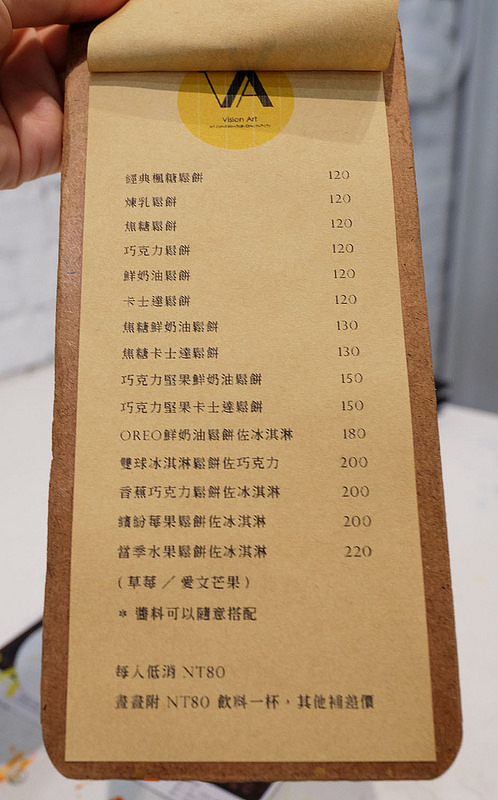 VA
Vision Art
經典楓糖鬆餅 120
煉乳鬆餅 120
焦糖鬆餅 120
巧克力鬆餅 120
鮮奶油鬆餅 120
卡士達鬆餅 120
焦糖鮮奶油鬆餅 130
焦糖卡士達鬆餅 130
巧克力堅果鮮奶油鬆餅 150
巧克力堅果卡士達鬆餅 150
OREO鮮奶油鬆餅佐冰淇淋 180
雙球冰淇淋鬆餅佐巧克力 200
香蕉巧克力鬆餅佐冰淇淋 200
繽紛莓果鬆餅佐冰淇淋 200
當季水果鬆餅佐冰淇淋 220
(草莓／愛文芒果)
* 醬料可以隨意搭配
每人低消 NT80
畫畫附 NT80 飲料一杯，其他補差價